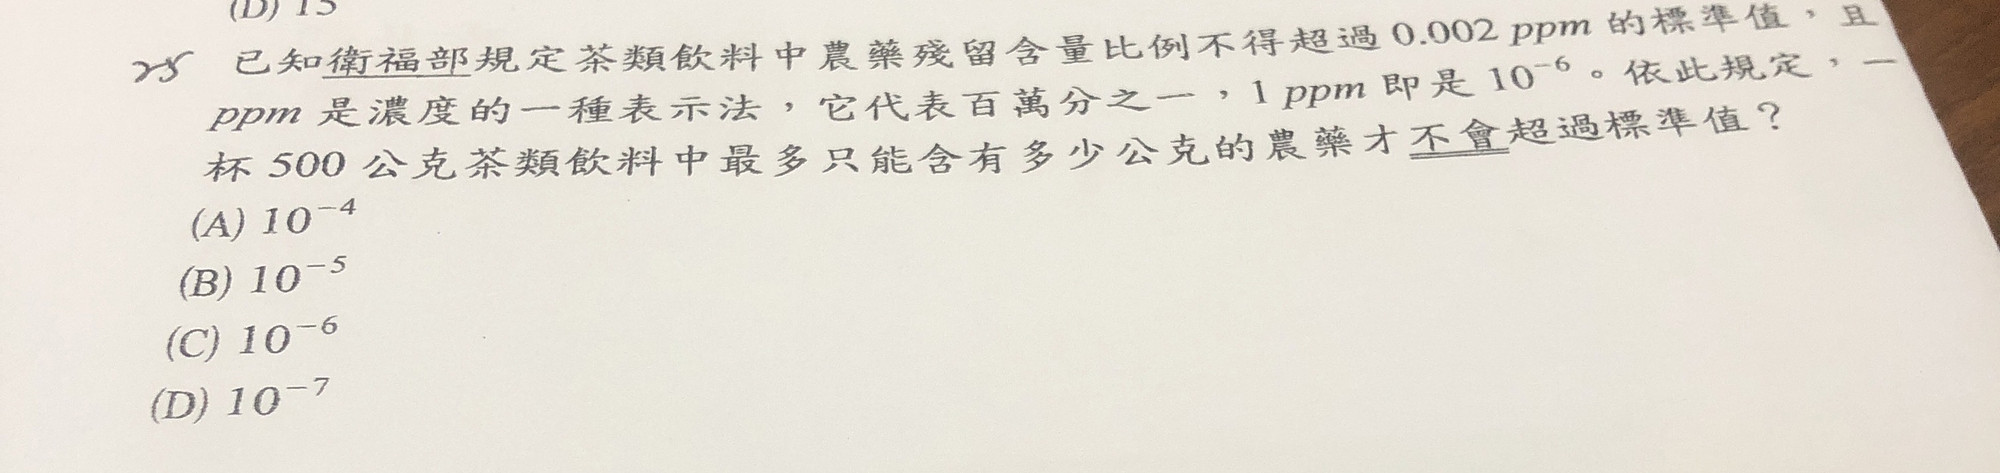 (D) 15
25 已知衛福部規定茶類飲料中農藥殘留含量比例不得超過 0.002 ppm 的標準值，且
ppm 是濃度的一種表示法，它代表百萬分之一，1 ppm 即是 10⁻⁶。依此規定，一
杯 500 公克茶類飲料中最多只能含有多少公克的農藥才不會超過標準值？
(A) 10⁻⁴
(B) 10⁻⁵
(C) 10⁻⁶
(D) 10⁻⁷